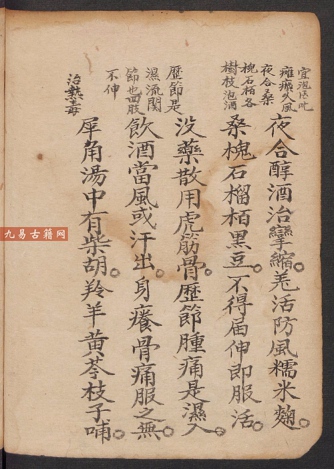 夜合醇酒治攣縮羌活防風糯米麴
桑槐石榴栢黑豆不得屈伸即服活
没藥散用虎筋骨歷節腫痛是濕入
飲酒當風或汗出身癢骨痛服之無
犀角湯中有柴胡羚羊黄芩枝子哺
癱瘓久風
夜合桑
槐石栢各
樹枝泡酒
歷節是
濕流関
節也四肢
不伸
治熱毒
九易古籍网